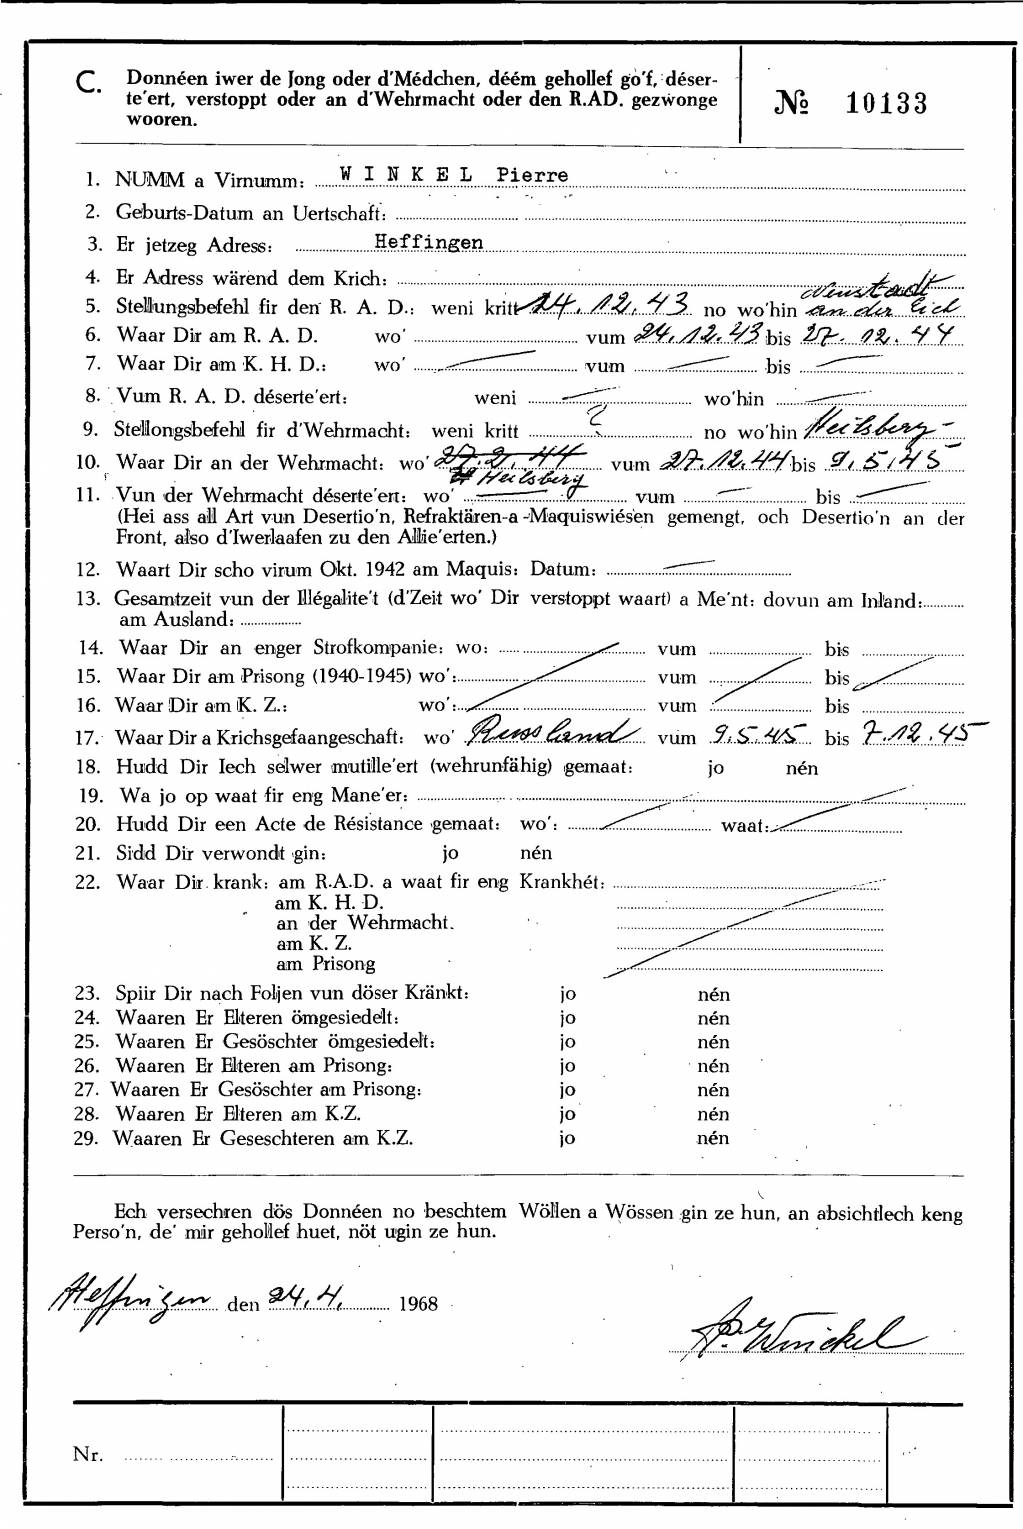 C. Donnéen iwer de Jong oder d'Médchen, déém gehollef go'f, déser-
te'ert, verstoppt oder an d'Wehrmacht oder den R.AD. gezwonge
wooren.
№ 10133
1. NUMM a Virnumm: WINKEL Pierre
2. Geburts-Datum an Uertschaft:
3. Er jetzeg Adress: Heffingen
4. Er Adress wärend dem Krich:
5. Stellungsbefehl fir den R. A. D.: weni kritt 24.12.43 no wo'hin an der Eich
6. Waar Dir am R. A. D. wo' vum 24.12.43 bis 27.12.44
7. Waar Dir am K. H. D.: wo' — vum — bis —
8. Vum R. A. D. déserte'ert: weni — wo'hin —
9. Stellongsbefehl fir d'Wehrmacht: weni kritt ? no wo'hin Heilsberg
10. Waar Dir an der Wehrmacht: wo' 27.2.44 vum 27.12.44 bis 9.5.45
Heilsberg
11. Vun der Wehrmacht déserte'ert: wo' — vum — bis —
(Hei ass all Art vun Desertio'n, Refraktären-a-Maquiswiésen gemengt, och Desertio'n an der
Front, also d'Iwerlaafen zu den Allie'erten.)
12. Waart Dir scho virum Okt. 1942 am Maquis: Datum: —
13. Gesamtzeit vun der Illégalite't (d'Zeit wo' Dir verstoppt waart) a Me'nt: dovun am Inland:
am Ausland:
14. Waar Dir an enger Strofkompanie: wo: vum bis
15. Waar Dir am Prisong (1940-1945) wo': vum bis
16. Waar Dir am K. Z.: wo': vum bis
17. Waar Dir a Krichsgefaangeschaft: wo' Russland vum 9.5.45 bis 7.12.45
18. Hudd Dir Iech selwer mutille'ert (wehrunfähig) gemaat: jo nén
19. Wa jo op waat fir eng Mane'er:
20. Hudd Dir een Acte de Résistance gemaat: wo': waat:
21. Sidd Dir verwondt gin: jo nén
22. Waar Dir krank: am R.A.D. a waat fir eng Krankhét:
am K. H. D.
an der Wehrmacht.
am K. Z.
am Prisong
23. Spiir Dir nach Foljen vun döser Kränkt: jo nén
24. Waaren Er Elteren ömgesiedelt: jo nén
25. Waaren Er Gesöschter ömgesiedelt: jo nén
26. Waaren Er Elteren am Prisong: jo nén
27. Waaren Er Gesöschter am Prisong: jo nén
28. Waaren Er Elteren am K.Z. jo nén
29. Waaren Er Geseschteren am K.Z. jo nén
Ech versechren dös Donnéen no beschtem Wöllen a Wössen gin ze hun, an absichtlech keng
Perso'n, de' mir gehollef huet, nöt ugin ze hun.
Heffingen den 24.4. 1968
P. Winckel
Nr.